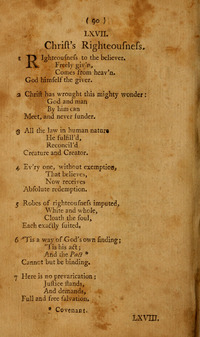 ( 90 )
LXVII.
Chriſt's Righteouſneſs.
1 Righteouſneſs to the believer,
Freely giv'n,
Comes from heav'n,
God himſelf the giver.
2 Chriſt has wrought this mighty wonder:
God and man
By him can
Meet, and never ſunder.
3 All the law in human nature
He fulfill'd,
Reconcil'd
Creature and Creator.
4 Ev'ry one, without exemption,
That believes,
Now receives
Abſolute redemption.
5 Robes of righteouſneſs imputed,
White and whole,
Cloath the ſoul,
Each exactly ſuited.
6 'Tis a way of God's own finding;
'Tis his act;
And the Pact *
Cannot but be binding.
7 Here is no prevarication;
Juſtice ſtands,
And demands,
Full and free ſalvation.
* Covenant.
LXVIII.